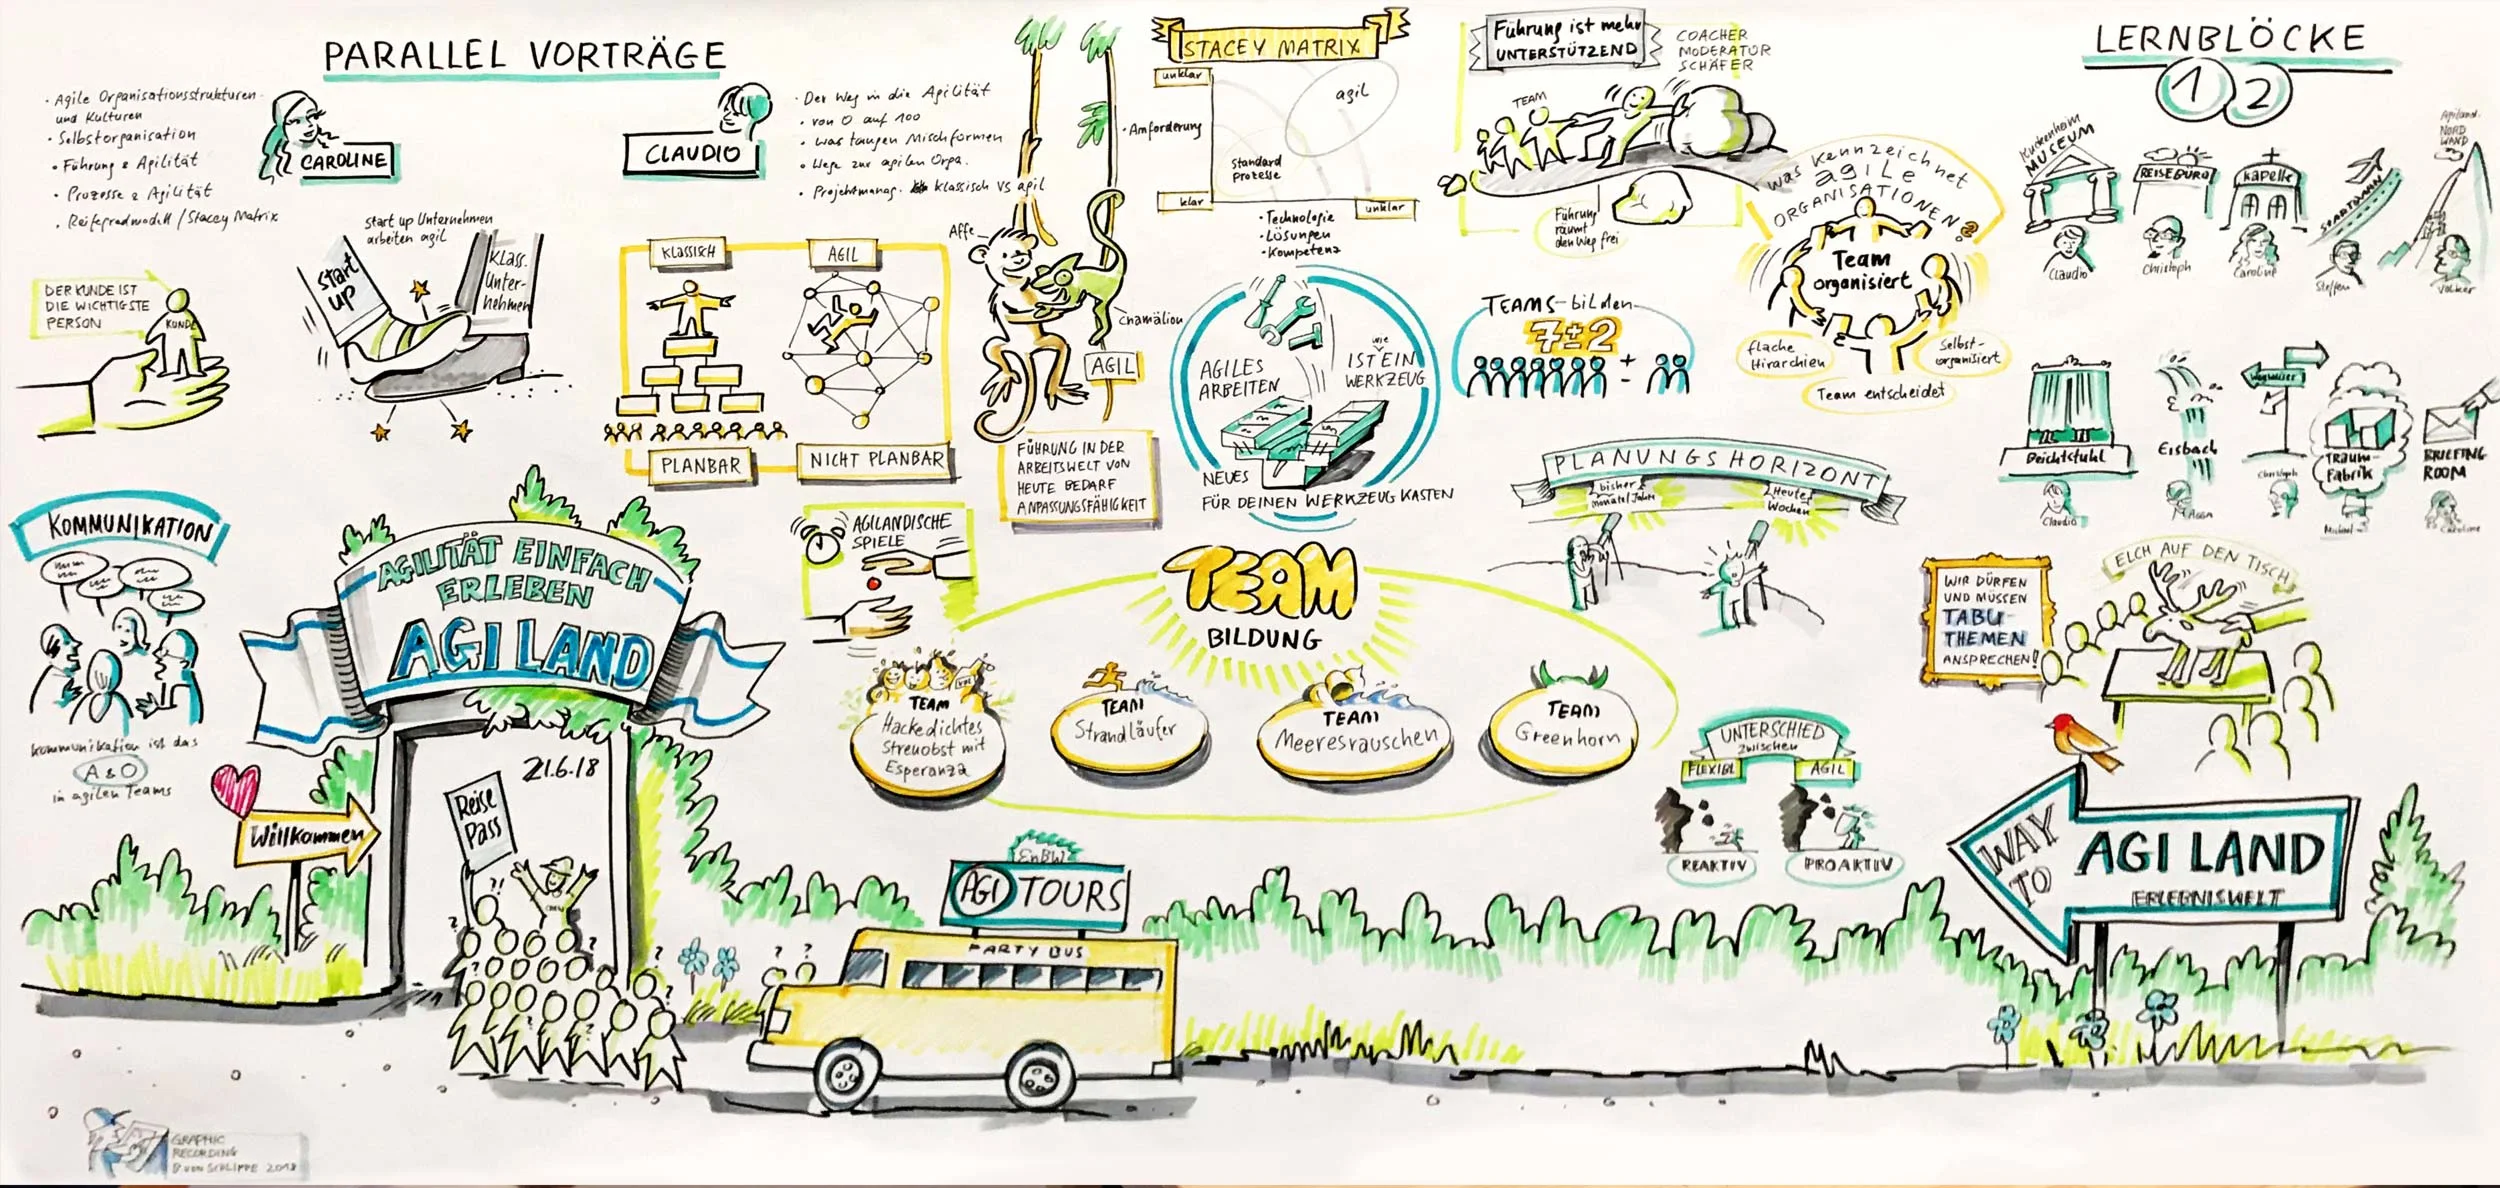 PARALLEL VORTRÄGE
· Agile Organisationsstrukturen
und Kulturen
· Selbstorganisation
· Führung & Agilität
· Prozesse & Agilität
· Reifegradmodell / Stacey Matrix
CAROLINE
CLAUDIO
· Der Weg in die Agilität
· von 0 auf 100
· was taugen Mischformen
· Wege zur agilen Orga.
· Projektmanag. klassisch VS agil
DER KUNDE IST
DIE WICHTIGSTE
PERSON
KUNDE
Start up Unternehmen
arbeiten agil
Start
up
Klass.
Unter-
nehmen
KLASSISCH
AGIL
PLANBAR
NICHT PLANBAR
Affe
Chamälion
AGIL
FÜHRUNG IN DER
ARBEITSWELT VON
HEUTE BEDARF
ANPASSUNGSFÄHIGKEIT
STACEY MATRIX
unklar
· Anforderung
klar
agil
Standard
prozesse
unklar
· Technologie
· Lösungen
· Kompetenz
AGILES
ARBEITEN
wie
IST EIN
WERKZEUG
NEUES
FÜR DEINEN WERKZEUG KASTEN
Führung ist mehr
UNTERSTÜTZEND
COACHER
MODERATOR
SCHÄFER
TEAM
Führung
räumt
den Weg frei
TEAMS-bilden
7±2
+
-
was kennzeichnet
agile
ORGANISATIONEN?
Team
organisiert
flache
Hirarchien
Selbst-
organisiert
Team entscheidet
PLANUNGSHORIZONT
bisher
Monate/Jahre
Heute
Wochen
LERNBLÖCKE
1 2
MUSEUM
REISEBÜRO
Kapelle
STARTBAHN
Agiland.
NORD
WAND
Claudio
Christoph
Caroline
Steffen
Volker
Beichtstuhl
Eisbach
Wegweiser
TRAUM-
Fabrik
BRIEFING
ROOM
Claudio
Christoph
Michael
Caroline
KOMMUNIKATION
Kommunikation ist das
A & O
in agilen Teams
AGILITÄT EINFACH
ERLEBEN
AGILAND
21.6.18
Reise
Pass
Willkommen
CREW
AGILANDISCHE
SPIELE
TEAM
BILDUNG
TEAM
Hackedichtes
Streuobst mit
Esperanza
TEAM
Strandläufer
TEAM
Meeresrauschen
TEAM
Greenhorn
UNTERSCHIED
zwischen
FLEXIBL
AGIL
REAKTIV
PROAKTIV
WIR DÜRFEN
UND MÜSSEN
TABU-
THEMEN
ANSPRECHEN!
ELCH AUF DEN TISCH
EnBW
AGI TOURS
PARTY BUS
WAY
TO
AGILAND
ERLEBNISWELT
GRAPHIC
RECORDING
B VON SCHLIPPE 2018